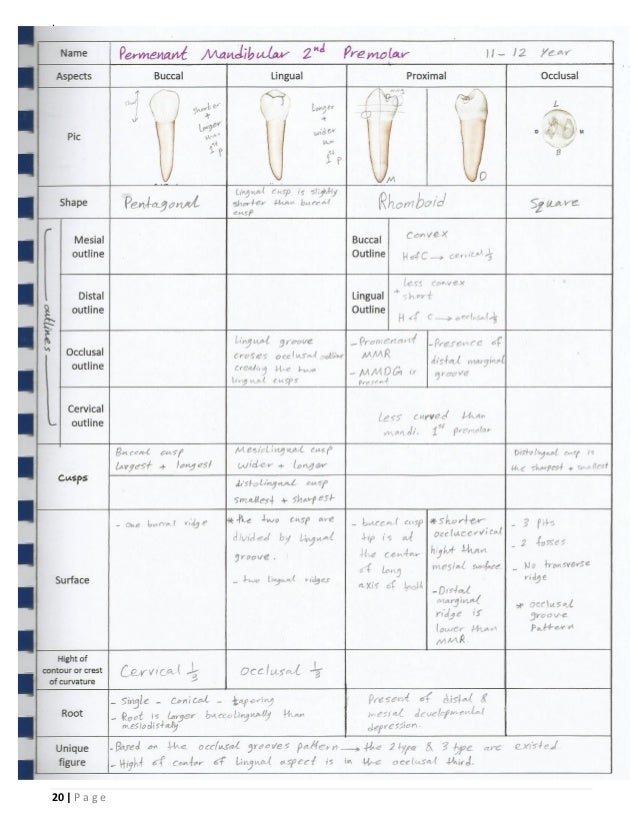 Name Permenant Mandibular 2nd Premolar 11-12 Year
Aspects Buccal Lingual Proximal Occlusal
Pic
shorter
+
Larger
1st P
Longer
+
wider
1st P
M
D
L
D
M
B
Shape Pentagonal
Lingual cusp is slightly
shorter than buccal
cusp
Rhomboid
Square
outlines
Mesial
outline
Buccal
Outline
Convex
H of C → cervical 1/3
Distal
outline
Lingual
Outline
less convex
+ short
H of C → occlusal 1/3
Occlusal
outline
Lingual groove
croses occlusal outline
creating the two
lingual cusps
- Promenant
MMR
- MMDG is
present
- Presence of
distal marginal
groove
Cervical
outline
Less curved than
mandi. 1st premolar
Cusps
Buccal cusp
Largest + longest
Mesiolingual cusp
wider + longer
distolingual cusp
smallest + sharpest
Distolingual cusp is
the sharpest + smallest
Surface
- one buccal ridge
* the two cusp are
divided by lingual
groove.
- two lingual ridges
- buccal cusp
tip is at
the center
of long
axis of tooth
* shorter
occlucervical
hight than
mesial surface.
- Distal
marginal
ridge is
lower than
MMR.
- 3 pits
- 2 fosses
- No transverse
ridge
* occlusal
groove
Pattern
Hight of
contour or crest
of curvature
Cervical 1/3
Occlusal 1/3
Root
- Single - Conical - tapering
- Root is larger buccolingually than
mesiodistally
Present of distal &
mesial developmental
depression.
Unique
figure
- Based on the occlusal grooves pattern → the 2 type & 3 type are existed
- Hight of contor of lingual aspect is in the occlusal third.
20 | P a g e